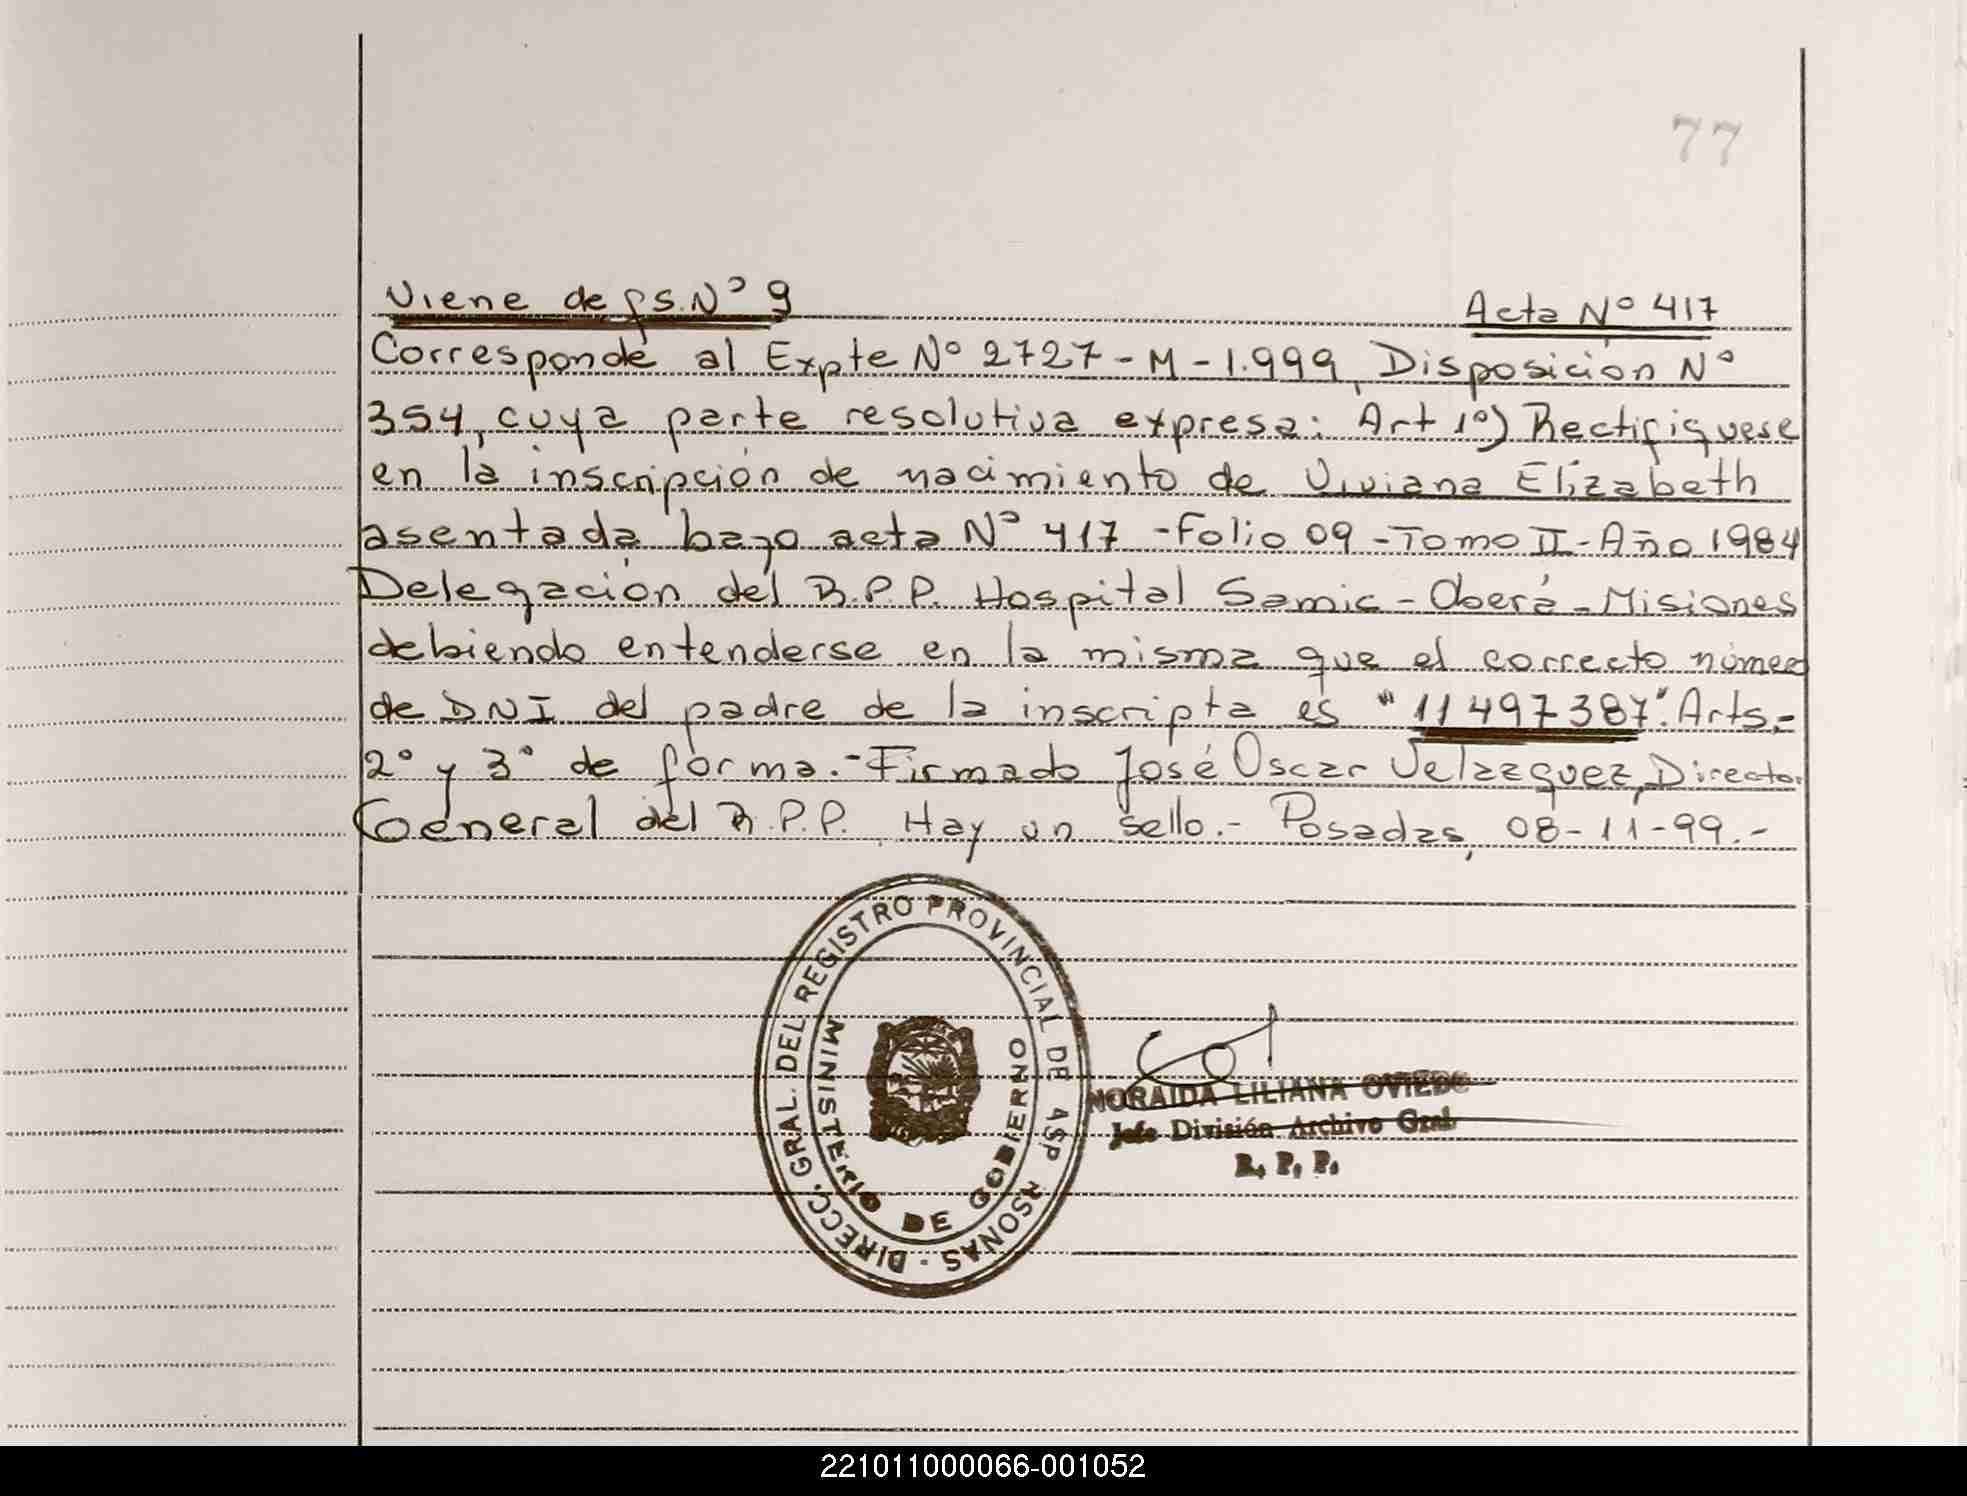 77
Viene de fs. Nº 9 Acta Nº 417
Corresponde al Expte Nº 2727-M-1.999, Disposición Nº
354, cuya parte resolutiva expresa: Art 1º) Rectifiquese
en la inscripción de nacimiento de Viviana Elizabeth
asentada bajo acta Nº 417 - Folio 09 - Tomo II - Año 1984
Delegación del R.P.P. Hospital Samic - Oberá - Misiones
debiendo entenderse en la misma que el correcto número
de DNI del padre de la inscripta es "11497387". Arts.-
2º y 3º de forma.- Firmado José Oscar Velazquez, Director
General del R.P.P. Hay un sello.- Posadas, 08-11-99.-
DIRECC. GRAL. DEL REGISTRO PROVINCIAL DE ASP RSONAS
MINISTERIO DE GOBIERNO
NORAIDA LILIANA OVIEDO
Jefe División Archivo Gral
R. P. P.
221011000066-001052